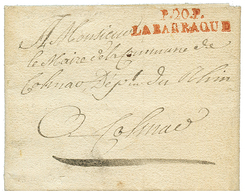 P.20.P.
LABARRAQUE
A Monsieur
le Maire de la Commune de
Colmar Dép. du Rhin
A Colmar